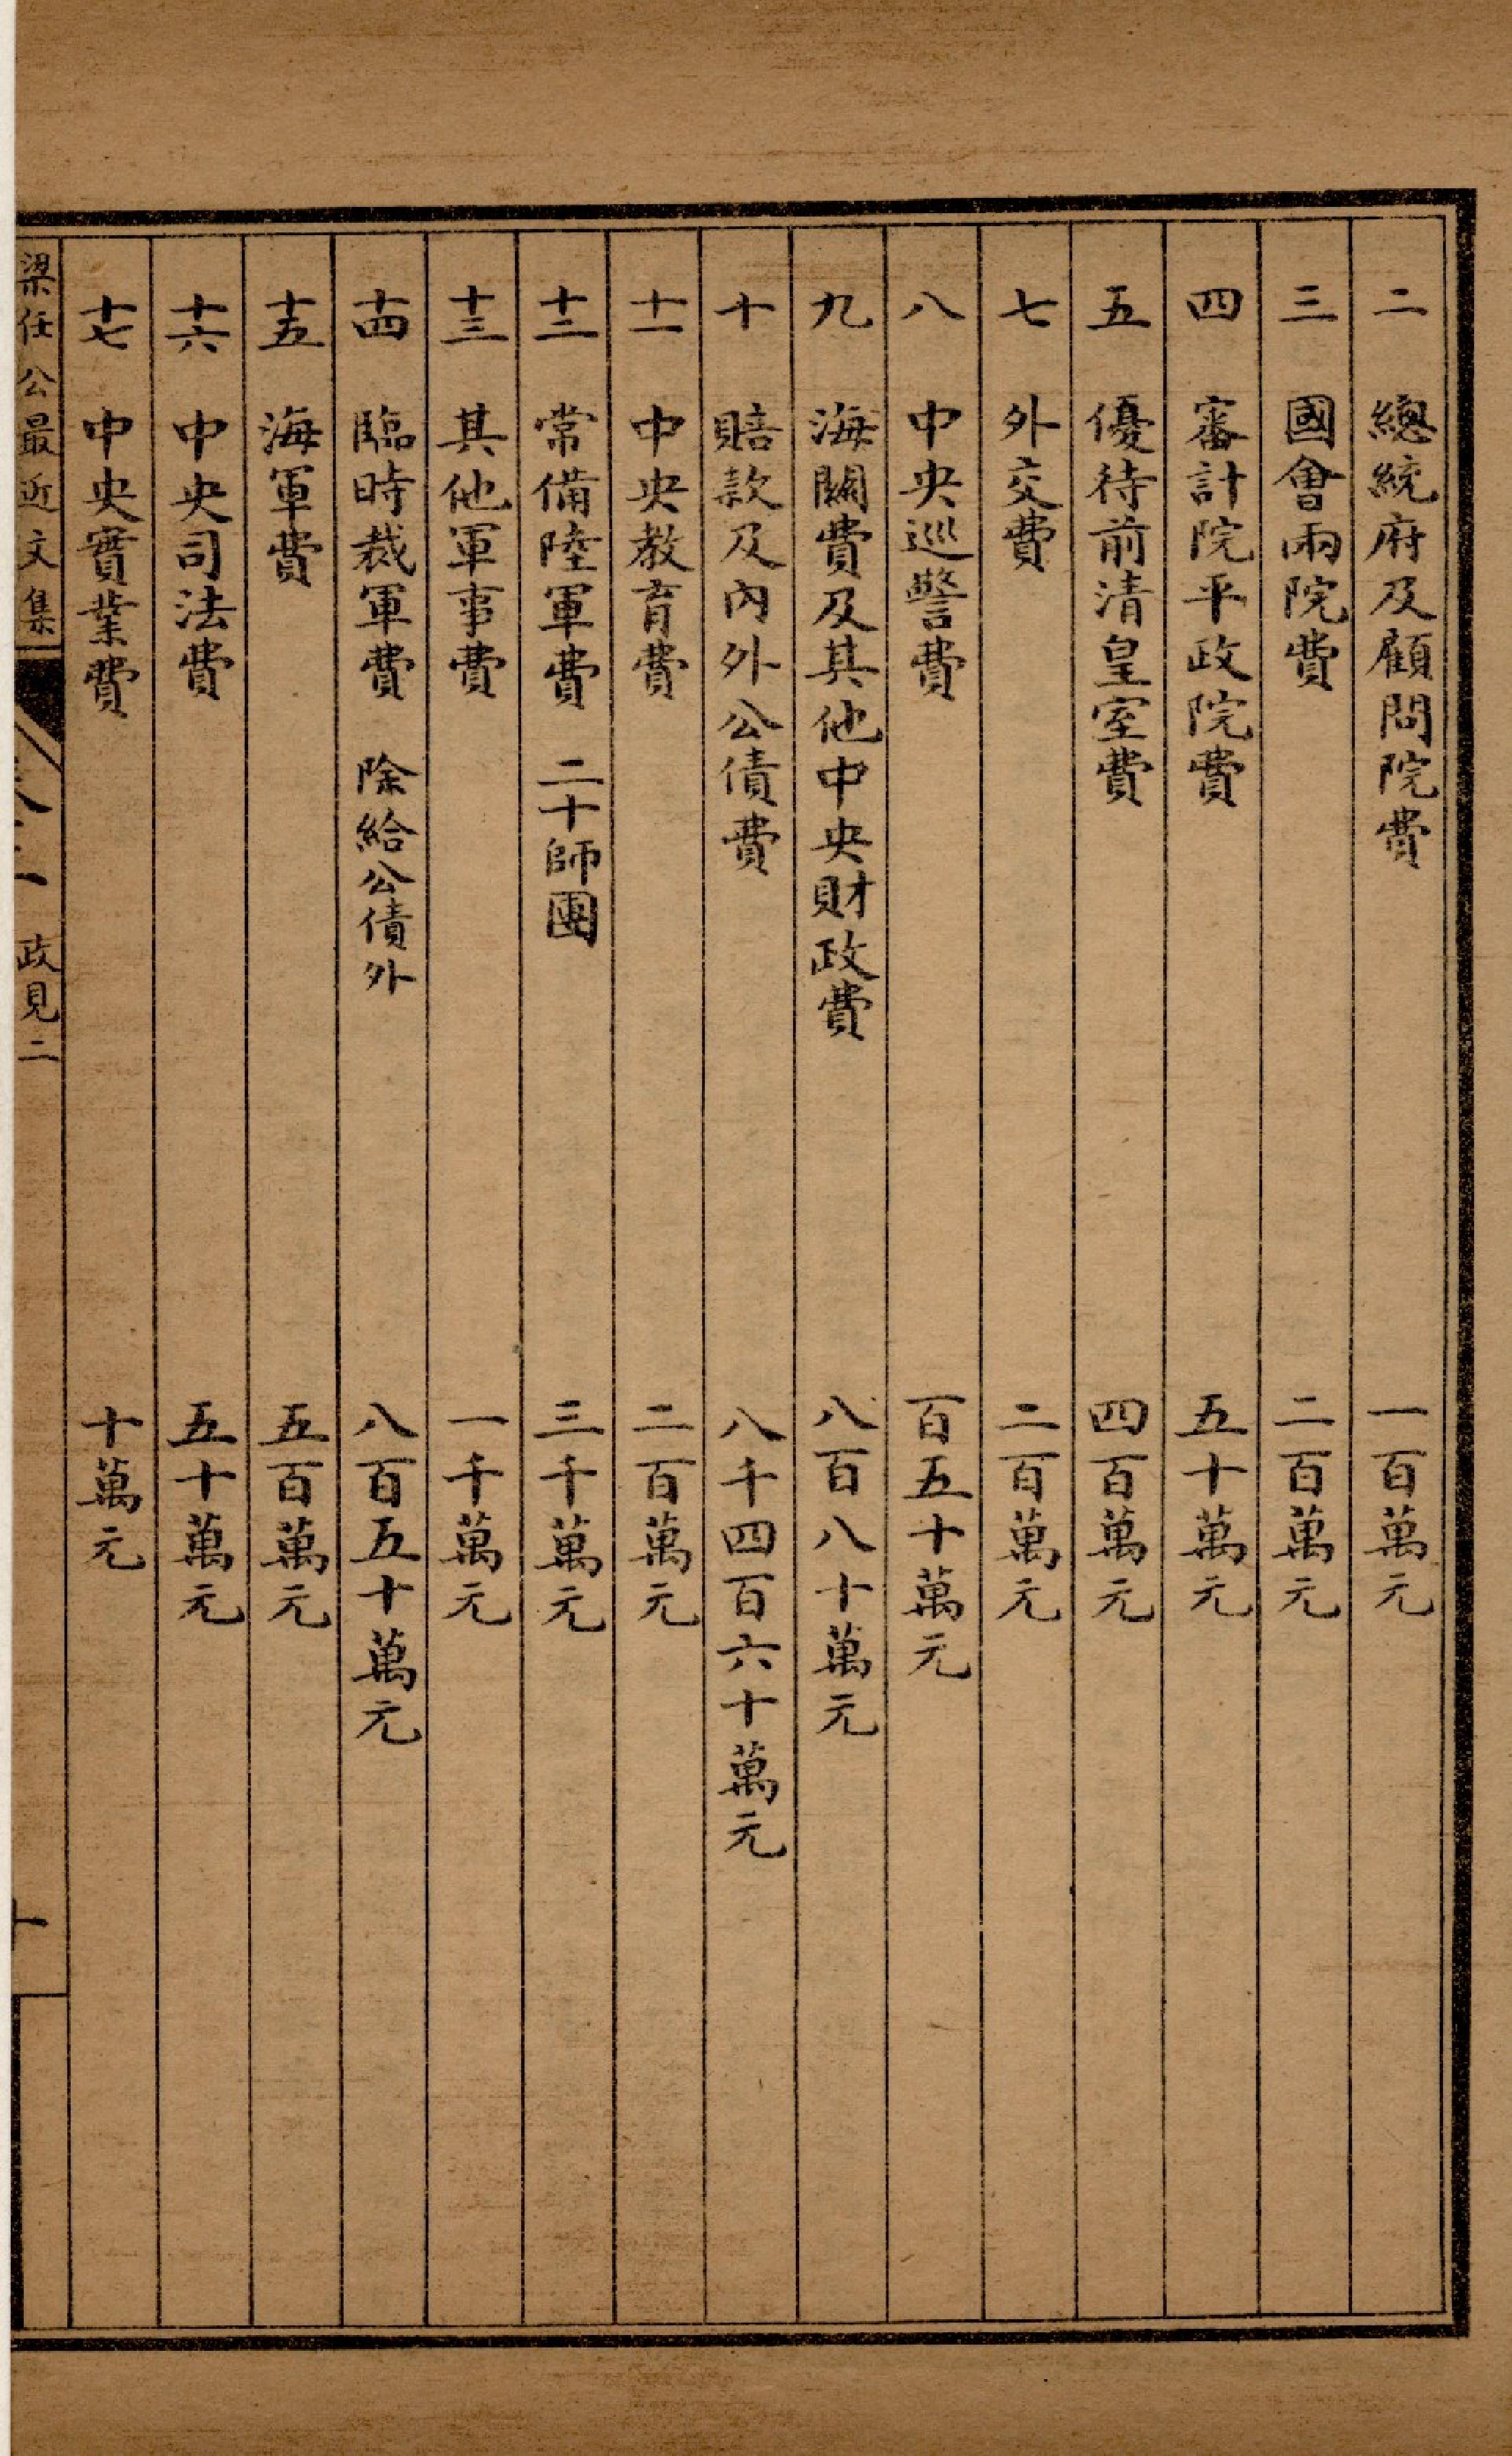 二　總統府及顧問院費　一百萬元
三　國會兩院費　二百萬元
四　審計院平政院費　五十萬元
五　優待前清皇室費　四百萬元
七　外交費　二百萬元
八　中央巡警費　百五十萬元
九　海關費及其他中央財政費　八百八十萬元
十　賠款及內外公債費　八千四百六十萬元
十一　中央教育費　二百萬元
十二　常備陸軍費　二十師團　三千萬元
十三　其他軍事費　一千萬元
十四　臨時裁軍費　除給公債外　八百五十萬元
十五　海軍費　五百萬元
十六　中央司法費　五十萬元
十七　中央實業費　十萬元
梁任公最近文集　政見二